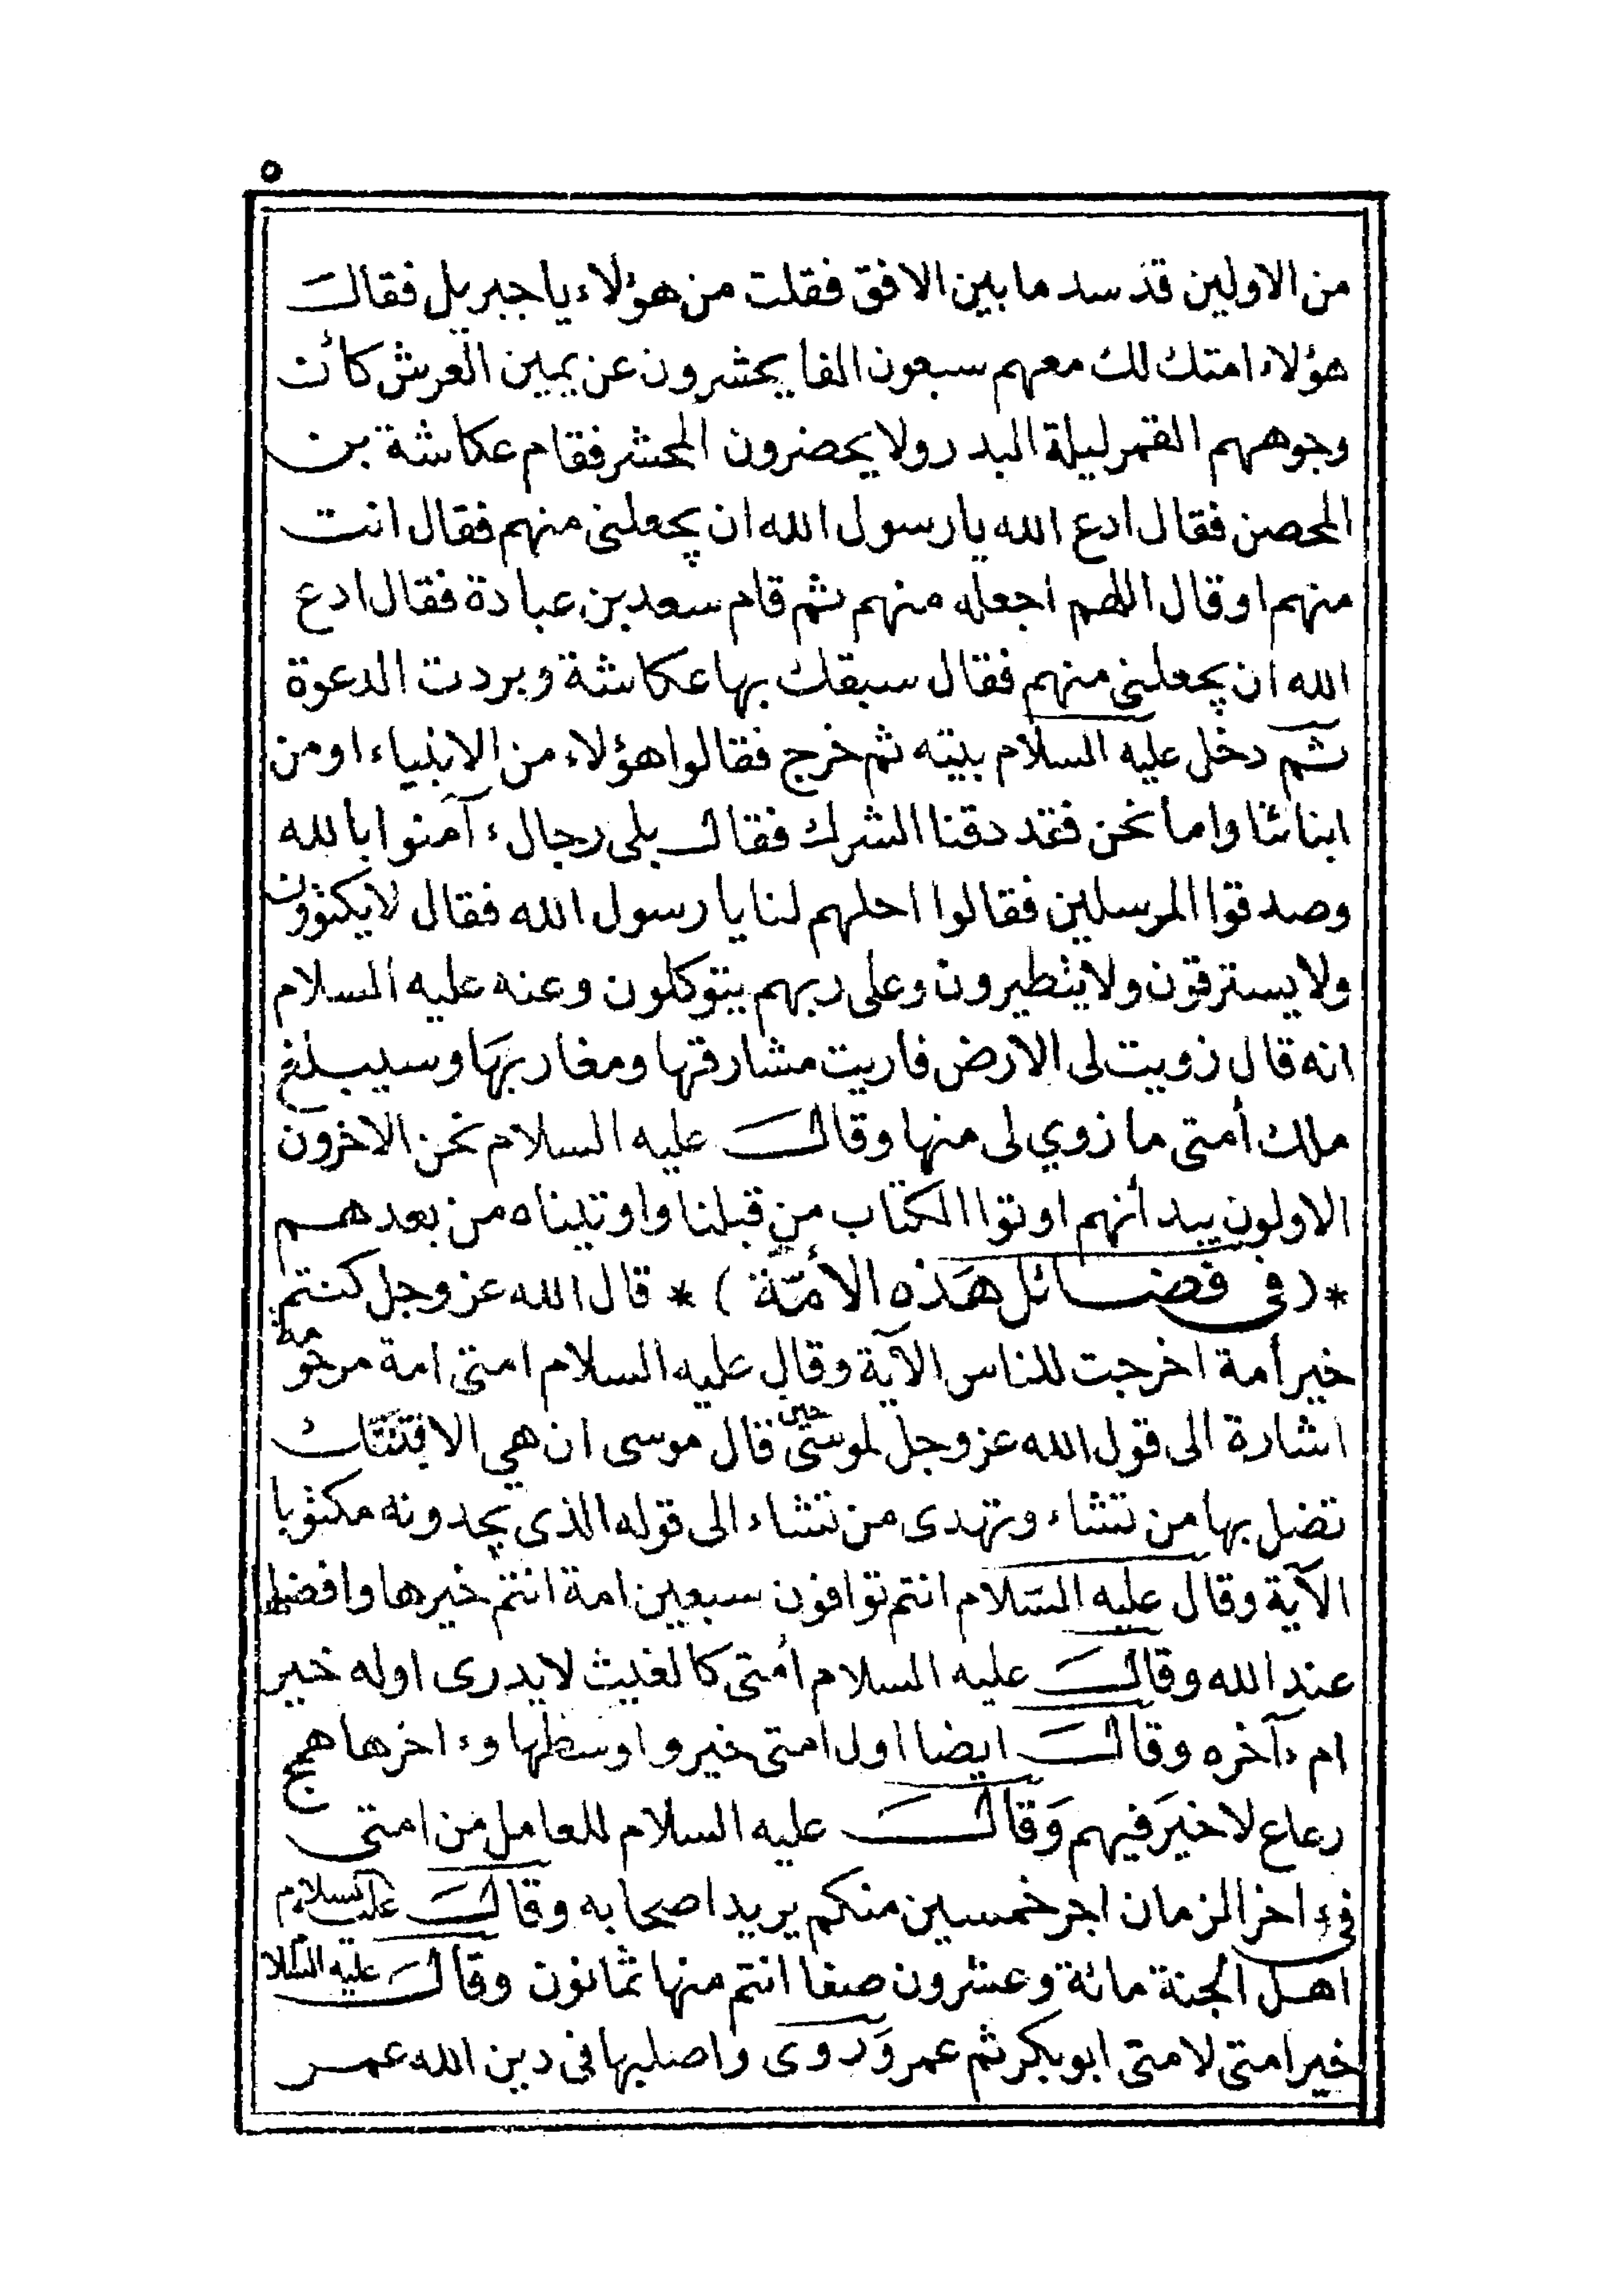 ٥
من الاولين قد سد ما بين الافق فقلت من هؤلاء يا جبريل فقال
هؤلاء امتك لك معهم سبعون الفا يحشرون عن يمين العرش كأن
وجوههم القمر ليلة البدر ولا يحضرون المحشر فقام عكاشة بن
المحصن فقال ادع الله يا رسول الله ان يجعلني منهم فقال انت
منهم او قال اللهم اجعله منهم ثم قام سعد بن عبادة فقال ادع
الله ان يجعلني منهم فقال سبقك بها عكاشة وبردت الدعوة
ثم دخل عليه السلام بيته ثم خرج فقالوا هؤلاء من الانبياء او من
ابنائنا واما نحن فقد دقنا الشرك فقال بلى رجال ءآمنوا بالله
وصدقوا المرسلين فقالوا احلهم لنا يا رسول الله فقال لا يكتوون
ولا يسترقون ولا يتطيرون وعلى ربهم يتوكلون وعنه عليه السلام
انه قال زويت لى الارض فاريت مشارقها ومغاربها وسيبلغ
ملك أمتى ما زوي لى منها وقال عليه السلام نحن الاخرون
الاولون بيد أنهم اوتوا الكتاب من قبلنا واوتيناه من بعدهم
*(فى فضائل هذه الأمّة)* قال الله عز وجل كنتم
خير أمة اخرجت للناس الآية وقال عليه السلام امتى امة مرحومة
اشارة الى قول الله عز وجل لموسى حين قال موسى ان هي الا فتنتك
تضل بها من تشاء وتهدى من تشاء الى قوله الذى يجدونه مكتوبا
الآية وقال عليه السّلام انتم توافون سبعين امة انتم خيرها وافضلها
عند الله وقال عليه السلام أمتى كالغيث لا يدرى اوله خير
ام ءآخره وقال ايضا اول امتى خير واوسطها وءاخرها همج
رعاع لا خيَر فيهم وَقال عليه السلام للعامل من امتى
فى ءاخر الزمان اجر خمسين منكم يريد اصحابه وقال عليه السلام
اهل الجنة مائة وعشرون صفا انتم منها ثمانون وقال عليه السلا
خير امتى لامتى ابو بكر ثم عمر وَروى واصلبها فى دين الله عمر